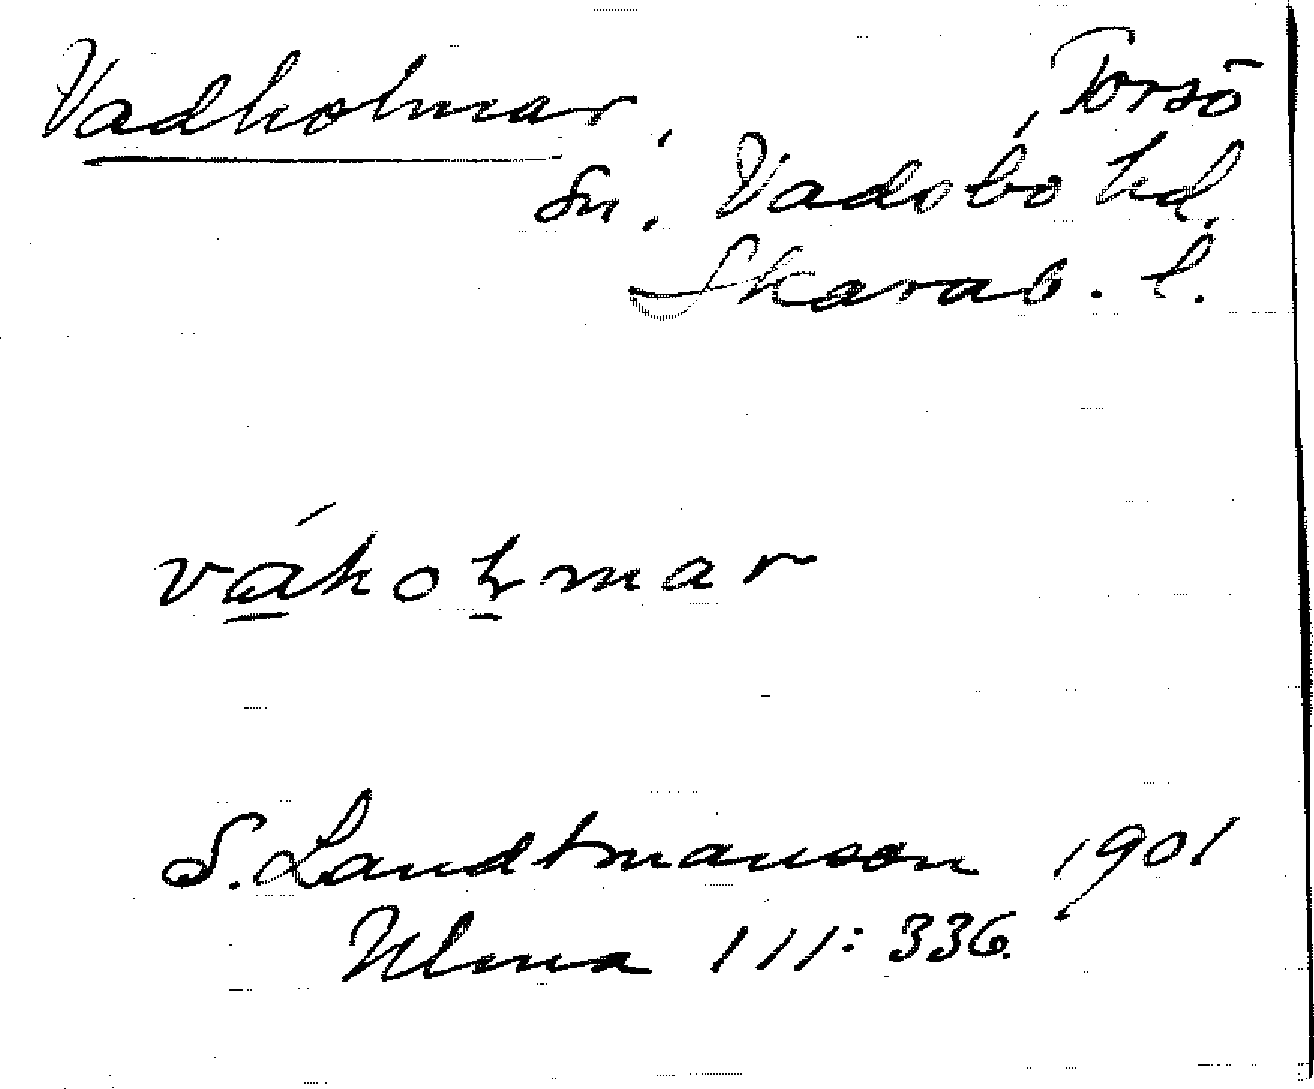 Vadholmar, Torsö
sn. Vadsbo hd.
Skarab. l.
váholmar
S. Landtmanson 1901
Ulma 111:336.